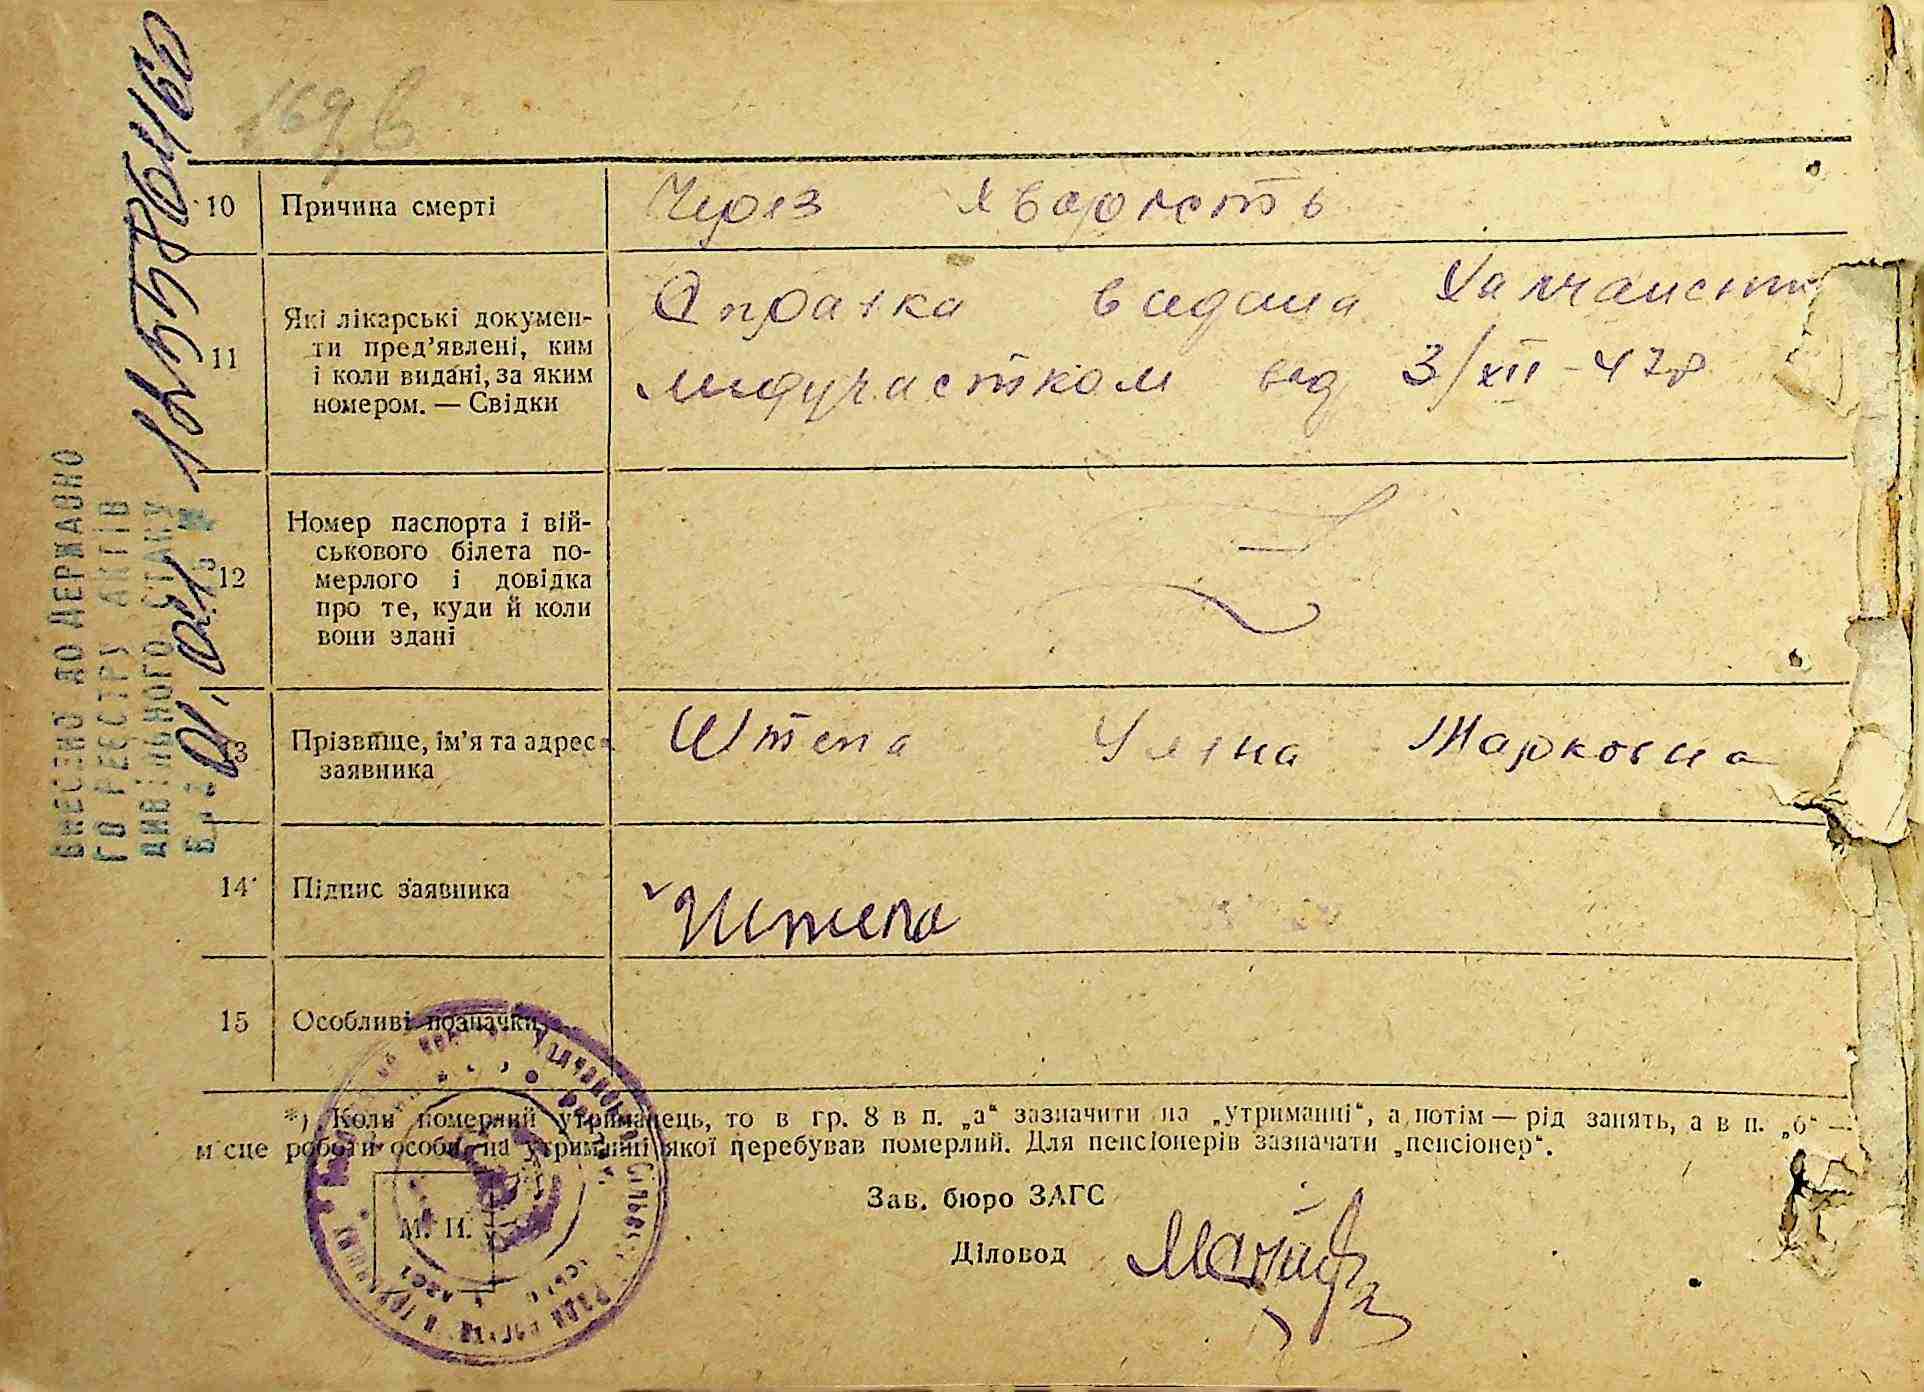 169 в
10 Причина смерті Через хворість
11 Які лікарські докумен-
ти пред'явлені, ким
і коли видані, за яким
номером. — Свідки
Справка видана Халчанским
медучастком від 3/XII-47р
12 Номер паспорта і вій-
ськового білета по-
мерлого і довідка
про те, куди й коли
вони здані
13 Прізвище, ім'я та адреса
заявника
Штепа Уляна Марковна
14 Підпис заявника Штепа
15 Особливі позначки
*) Коли померлий утриманець, то в гр. 8 в п. „а“ зазначити на „утриманні“, а потім — рід занять, а в п. „б“ —
місце роботи особи, на утриманні якої перебував померлий. Для пенсіонерів зазначати „пенсіонер“.
Зав. бюро ЗАГС
М. П.
Діловод
ВНЕСЕНО ДО ДЕРЖАВНО
ГО РЕЄСТРУ АКТІВ
ЦИВІЛЬНОГО СТАНУ